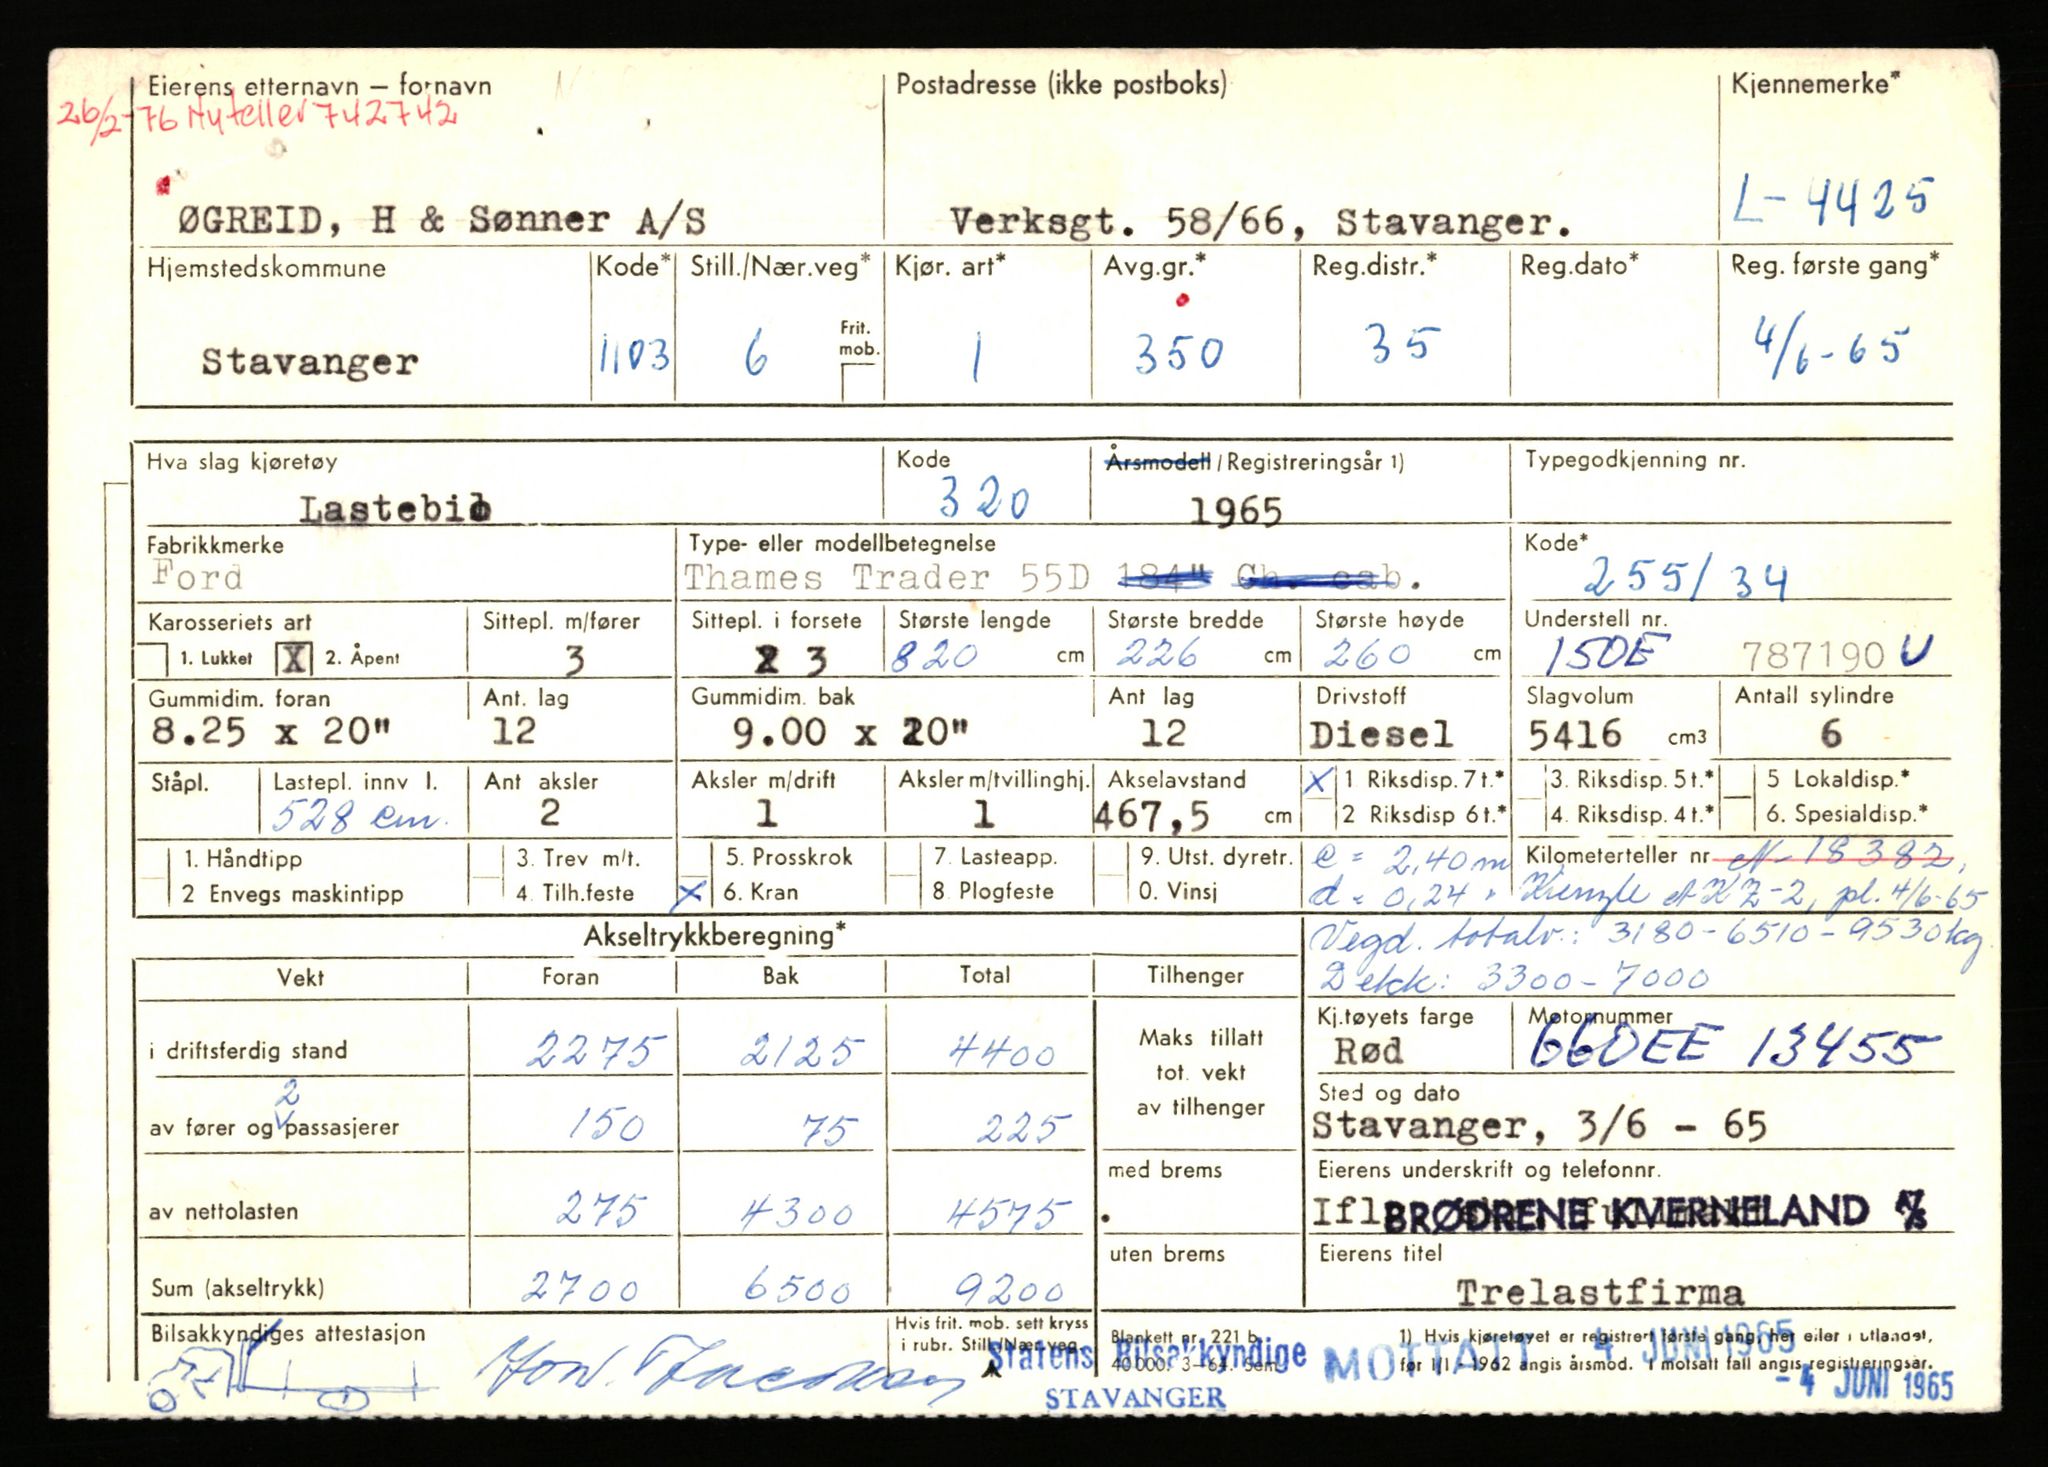 Eierens etternavn — fornavn Postadresse (ikke postboks) Kjennemerke*
26/2-76 Ny teller 742742
ØGREID, H & Sønner A/S Verksgt. 58/66, Stavanger. L-4425
Hjemstedskommune Kode* Still./Nær.veg* Kjør. art* Avg.gr.* Reg.distr.* Reg.dato* Reg. første gang*
Frit. mob.
Stavanger 1103 6 1 350 35 4/6-65
Hva slag kjøretøy Kode Årsmodell/Registreringsår 1) Typegodkjenning nr.
Lastebil 320 1965
Fabrikkmerke Type- eller modellbetegnelse Kode*
Ford Thames Trader 55D 184" Ch. cab. 255/34
Karosseriets art Sittepl. m/fører Sittepl. i forsete Største lengde Største bredde Største høyde Understell nr.
1. Lukket X 2. Åpent 3 3 820 cm 226 cm 260 cm 150E 787190 U
Gummidim. foran Ant. lag Gummidim. bak Ant lag Drivstoff Slagvolum Antall sylindre
8.25 x 20" 12 9.00 x 20" 12 Diesel 5416 cm3 6
Ståpl. Lastepl. innv l. Ant aksler Aksler m/drift Aksler m/tvillinghj. Akselavstand X 1 Riksdisp. 7 t.* 3. Riksdisp. 5 t.* 5 Lokaldisp.*
528 cm. 2 1 1 467,5 cm 2 Riksdisp 6 t.* 4. Riksdisp. 4 t.* 6. Spesialdisp.*
1. Håndtipp 3. Trev m/t. 5. Prosskrok 7. Lasteapp. 9. Utst. dyretr. e = 2,40 m Kilometerteller nr N-18382,
2 Envegs maskintipp 4. Tilh.feste X 6. Kran 8 Plogfeste 0. Vinsj d = 0,24 " Kienzle NKZ-2, pl. 4/6-65
Akseltrykkberegning* Vegd. totalv.: 3180-6510-9530kg.
Vekt Foran Bak Total Tilhenger Dekk: 3300-7000
Kj.tøyets farge Motornummer
i driftsferdig stand 2275 2125 4400 Maks tillatt tot. vekt av tilhenger Rød 660EE 13455
Sted og dato
2
av fører og passasjerer 150 75 225 Stavanger, 3/6 - 65
med brems Eierens underskrift og telefonnr.
av nettolasten 275 4300 4575 BRØDRENE KVERNELAND A/S
uten brems Eierens titel
Sum (akseltrykk) 2700 6500 9200 Trelastfirma
Bilsakkyndiges attestasjon Hvis frit. mob. sett kryss i rubr. Still/Nær.veg. Blankett nr. 221 b. 1) Hvis kjøretøyet er registrert første gang, her eller i utlandet,
40 000. 3-64. Sem før 1/1 1962 angis årsmod. I motsatt fall angis registreringsår.
Statens Bilsakkyndige MOTTATT 4 JUNI 1965
STAVANGER - 4 JUNI 1965